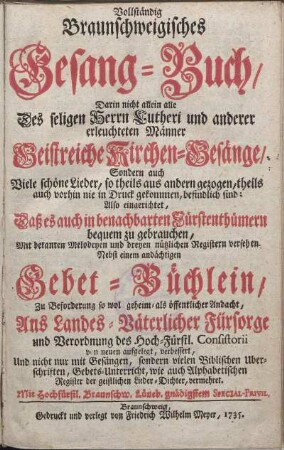 Vollständig
Braunschweigisches
Gesang-Buch/
Darin nicht allein alle
Des seligen Herrn Lutheri und anderer
erleuchteten Männer
Geistreiche Kirchen-Gesänge/
Sondern auch
Viele schöne Lieder, so theils aus andern gezogen/theils
auch vorhin nie in Druck gekommen, befindlich sind:
Also eingerichtet,
Daß es auch in benachbarten Fürstenthümern
bequem zu gebrauchen,
Mit bekanten Melodeyen und dreyen nützlichen Registern versehen.
Nebst einem andächtigen
Gebet-Büchlein,
Zu Beforderung so wol geheim- als öffentlicher Andacht,
Aus Landes-Väterlicher Fürsorge
und Verordnung des Hoch-Fürstl. Consistorii
von neuen aufgelegt, verbessert,
Und nicht nur mit Gesängen, sondern vielen Biblischen Uber-
schriften, Gebets-Unterricht, wie auch Alphabetischen
Register der geistlichen Lieder-Dichter, vermehret.
Mit Hochfürstl. Braunschw. Lüneb. gnädigstem SPECIAL-PRIVIL.
Braunschweig,
Gedruckt und verlegt von Friedrich Wilhelm Meyer, 1735.